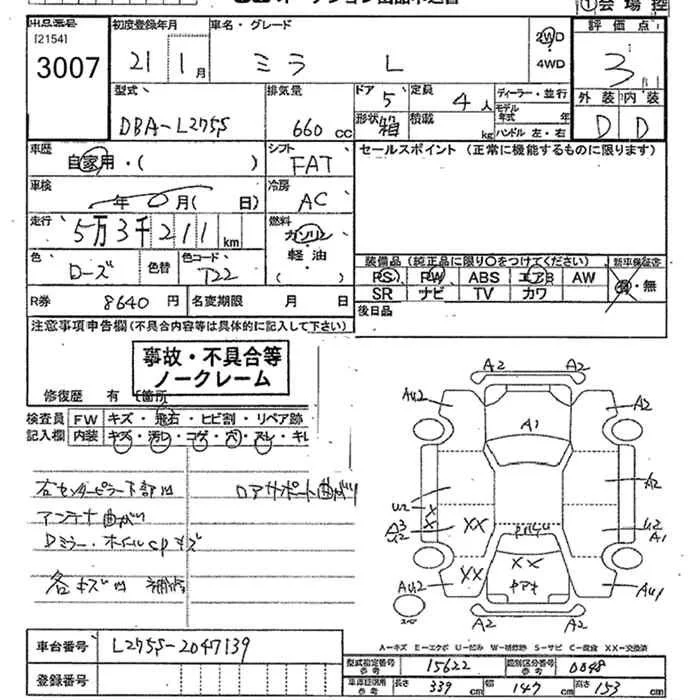 出品番号 初度登録年月 車名・グレード 評価点
[2154]
3007 21年 1月 ミラ L 2WD 4WD 3
型式 排気量 ドア 5 定員 4人 ディーラー・並行 外装 内装
DBA-L275S 660 cc 形状 箱 積載 kg モデル年式 年 ハンドル 左・右 D D
車歴 自家用・( ) シフト FAT セールスポイント (正常に機能するものに限ります)
車検 年 0月( 日) 冷房 AC
走行 5万3千211 km 燃料 ガソリン・軽油・( )
色 ローズ 色替 色コード T22 装備品(純正品に限り○をつけてください) 新車保証書
PS PW ABS エアB AW 有・無
R券 8640円 名変期限 月 日 SR ナビ TV カワ
注意事項申告欄(不具合内容等は具体的に記入して下さい) 後日品
事故・不具合等
ノークレーム
修復歴 有 【箇所
検査員 FW キズ・飛石・ヒビ割・リペア跡
記入欄 内装 キズ・汚レ・コゲ・穴・スレ・キレ
右センターピラー下部凹 ロアサポート曲がり
アンテナ曲がり
Dミラー・ホイールCPキズ
各キズ凹 補修
A2 A2
AU2 A2
A1
A2
U2 X
A3 X XX U2
U2 A1
XX XX
AU2 ヤアキ AU1
スペア A2 A2
A-キズ E-エクボ U-凹み W-補修跡 S-サビ C-腐食 XX-交換済
車台番号 L275S-2047139
型式指定番号 参考 15622 類別区分番号 参考 0048
登録番号 車庫証明用 参考 長さ 339 cm 幅 147 cm 高さ 153 cm